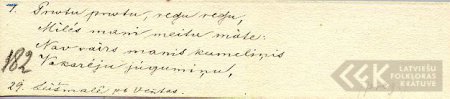 7. Prwtu prwtu, regu regu,
Mīlēs mani meitu māte:
Nav vairs manis kumeliņis
Vakarēju jūgumiņu,
182
29. Lūšmalē pē Ventas.
LATVIEŠU
FOLKLORAS
KRĀTUVE